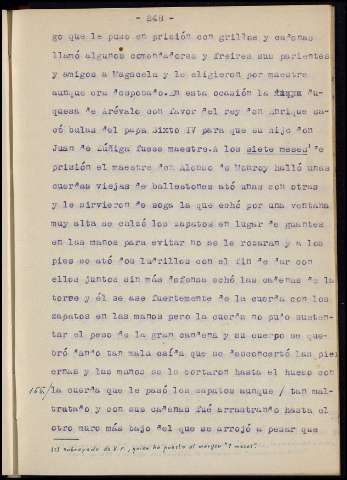 - 248 -
go que le puso en prisión con grillos y cadenas
llamó algunos comendadores y freires sus parientes
y amigos a Magacela y le eligieron por maestre
aunque era desposado. En esta ocasión la du-
quesa de Arévalo con favor del rey don Enrique sa-
có bulas del papa Sixto IV para que su hijo don
Juan de Zúñiga fuese maestre. A los siete meses de
prisión el maestre don Alonso de Monroy halló unas
cuerdas viejas de ballestones ató unas con otras
y le sirvieron de soga la que echó por una ventana
muy alta se calzó los zapatos en lugar de guantes
en las manos para evitar no se le rozaran y a los
pies se ató dos ladrillos con el fin de dar con
ellos juntos sin más defensa echó las cadenas de la
torre y él se ase fuertemente de la cuerda con los
zapatos en las manos pero la cuerda no pudo susten-
tar el peso de la gran cadena y su cuerpo se que-
bró dando tan mala caída que se desconcertó las pier
ernas y las manos se le cortaron hasta el hueso con
la cuerda que le pasó los zapatos aunque / tan mal-
tratado y con sus cadenas fué arrastrando hasta el
otro muro más bajo del que se arrojó a pesar que
(1) subrayado de V. r., quien ha puesto al margen "7 meses".